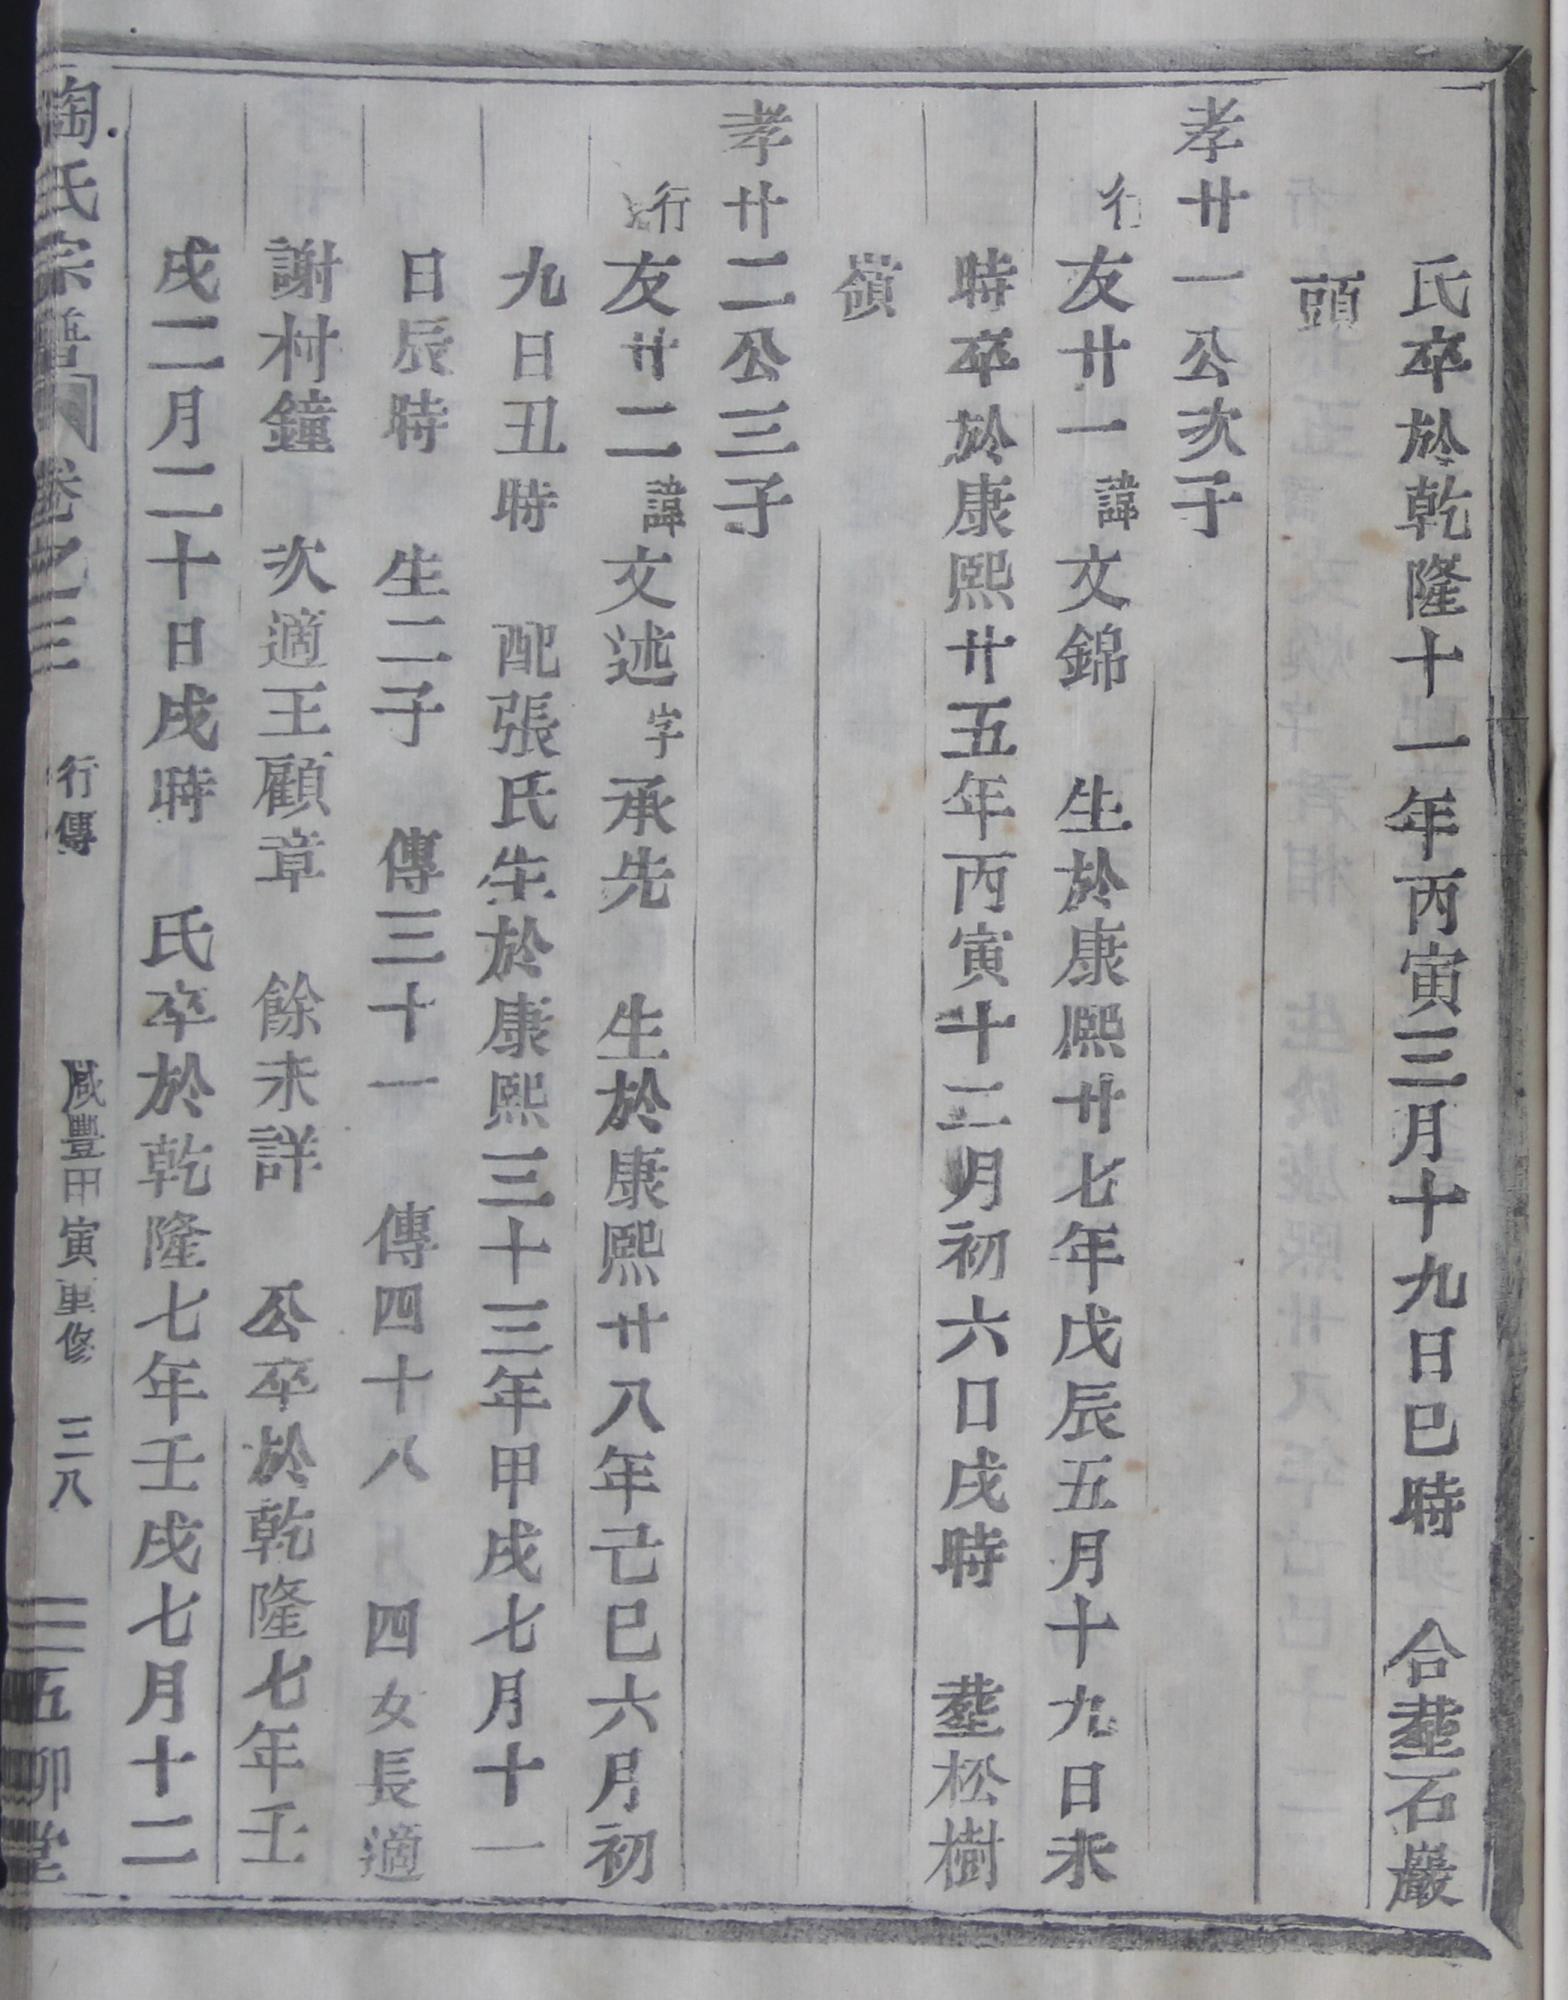 氏卒於乾隆十一年丙寅三月十九日巳時 合塟石巖
頭
孝廿一公次子
行友廿一諱文錦 生於康熙廿七年戊辰五月十九日未
時卒於康熙廿五年丙寅十二月初六日戌時 塟松樹
嶺
孝廿二公三子
行友廿二諱文述字承先 生於康熙廿八年己巳六月初
九日丑時 配張氏生於康熙三十三年甲戌七月十一
日辰時 生二子 傳三十一 傳四十八 四女長適
謝村鐘 次適王顧章 餘未詳 公卒於乾隆七年壬
戌二月二十日戌時 氏卒於乾隆七年壬戌七月十二
陶氏宗譜 卷之三 行傳 咸豐甲寅重修 三八 五柳堂